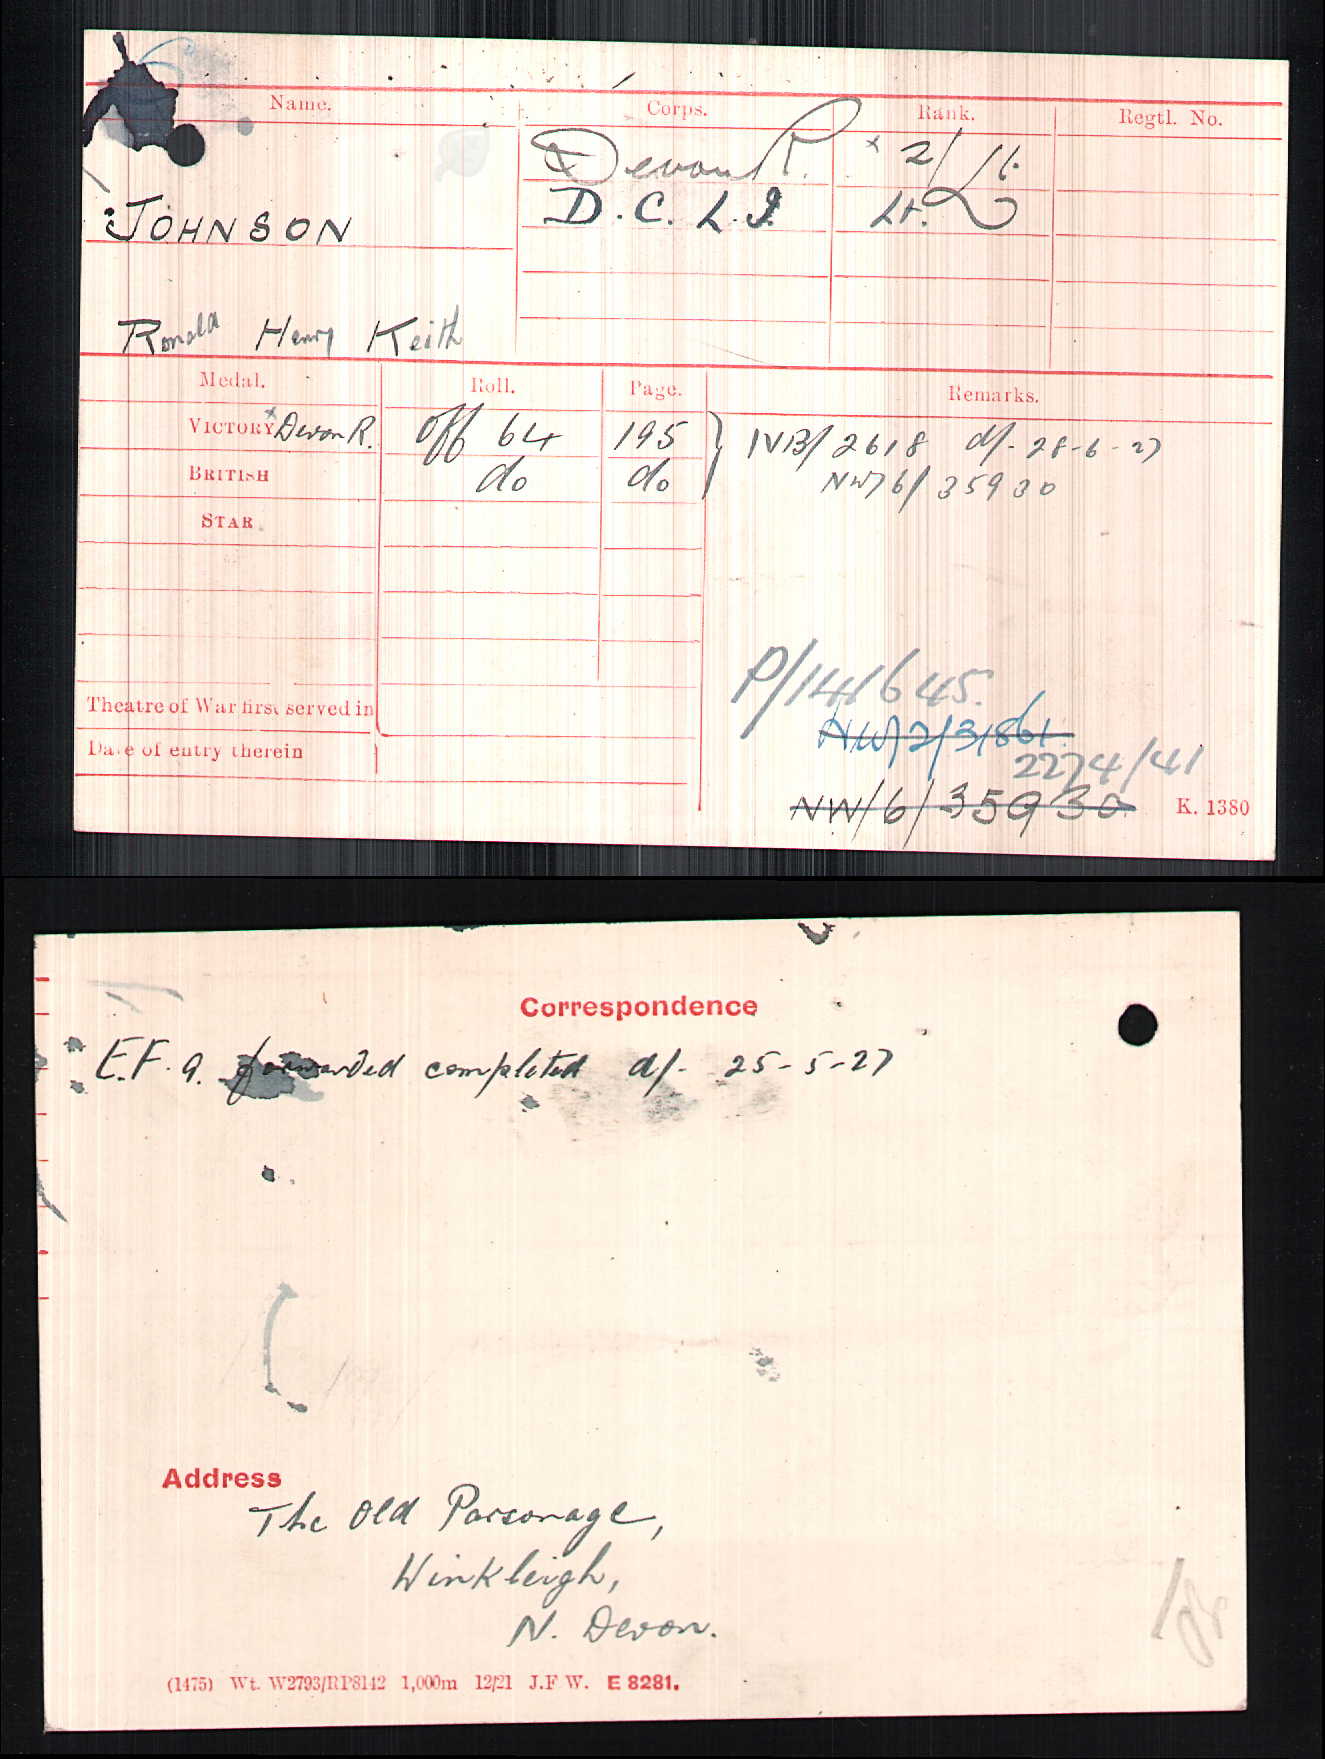 Name. Corps. Rank. Regtl. No.
Devon R. x 2/Lt.
JOHNSON D.C.L.I. Lt.
Ronald Henry Keith
Medal. Roll. Page. Remarks.
VICTORY x Devon R. Off 64 195 NB/2618 d/- 28-6-27
BRITISH do do NW/6/35930
STAR
P/141645.
Theatre of War first served in
NW/2/31861
Date of entry therein
2274/41
NW/6/35930 K. 1380
Correspondence
E.F.9. forwarded completed d/- 25-5-27
Address
The Old Parsonage,
Winkleigh,
N. Devon.
(1475) Wt. W2793/RP8142 1,000m 12/21 J.F.W. E 8281.